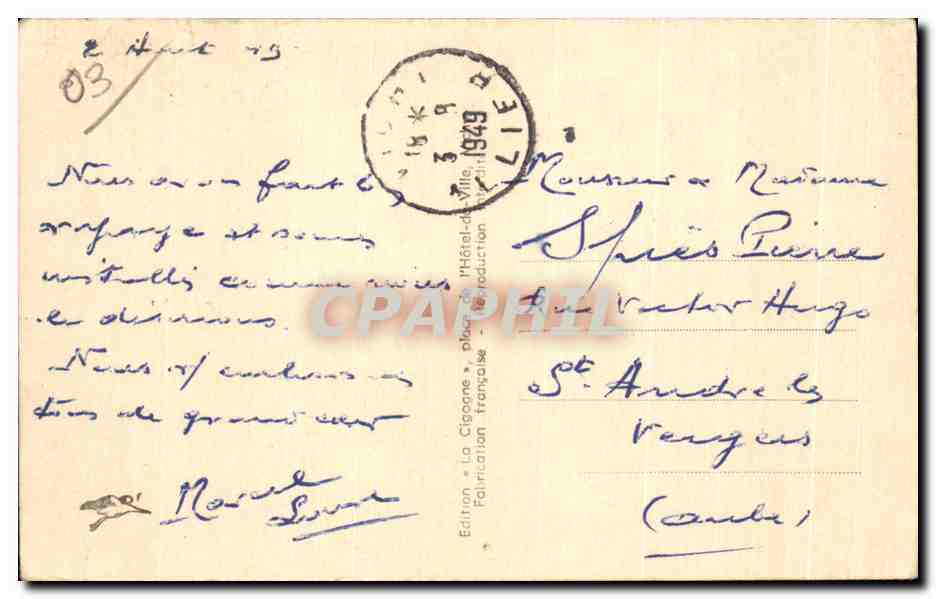 2 Aout 49
03
Nous avons fait bon
voyage et sommes
installés comme nous
le désirions.
Nous v/ embrassons
tous de grand cœur
Marcel
RIE 17
18 *
3 - 8
1949
Edition « La Cigogne », place de l'Hôtel-de-Ville,
Fabrication française - Reproduction interdite
CPAPHIL
Monsieur & Madame
Spiès Pierre
Rue Victor Hugo
St. Andre les
Vergers
(Aube)